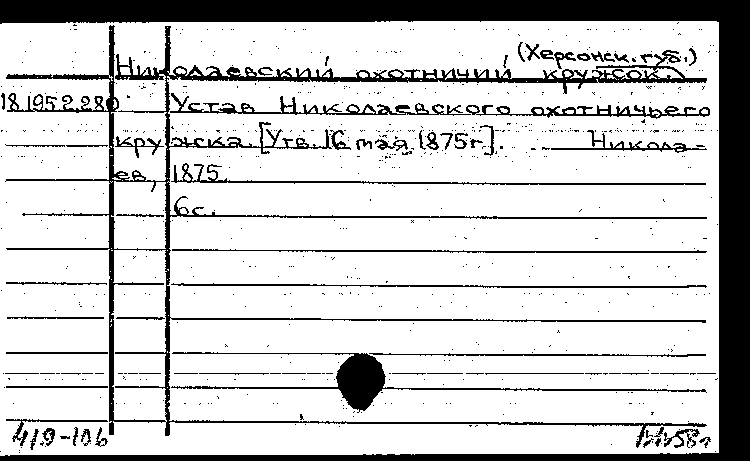 (Херсонск. губ.)
Николаевский охотничий кружок.
18.195.2.280 Устав Николаевского охотничьего
кружка. [Утв. 16 мая 1875г]. Никола-
ев, 1875.
6с.
419-106